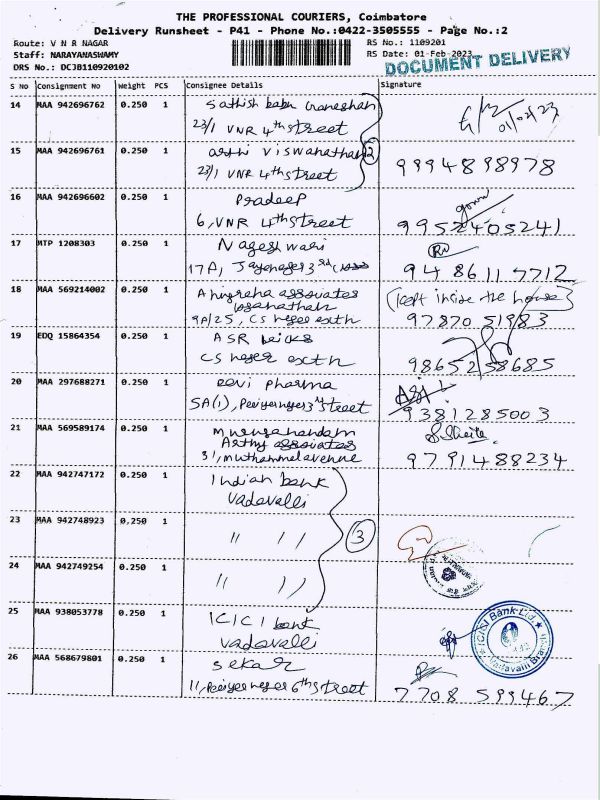 THE PROFESSIONAL COURIERS, Coimbatore
Delivery Runsheet - P41 - Phone No.:0422-3505555 - Page No.:2
Route: V N R NAGAR
Staff: NARAYANASWAMY
DRS No.: DCJB110920102
RS No.: 1109201
RS Date: 01-Feb-2023
DOCUMENT DELIVERY
S No Consignment No Weight PCS Consignee Details Signature
14 MAA 942696762 0.250 1 Sathish babu Ganeshan
23/1 VNR 4th street 01/02/23
15 MAA 942696761 0.250 1 arthi Viswanathan 2
23/1 VNR 4th street 9994898978
16 MAA 942696602 0.250 1 Pradeep
6, VNR 4th street 9952405241
17 MTP 1208303 0.250 1 Nageshwari
17A, Jayanagar 3rd cross 9486117712
18 MAA 569214002 0.250 1 Anugraha associates (kept inside the house)
9A/25, CS nager exth 9787051983
19 EDQ 15864354 0.250 1 ASR
CS nager exth 9865258685
20 MAA 297688271 0.250 1 Devi Pharma
5A(1), Periyernager 3rd street 9381285003
21 MAA 569589174 0.250 1 Muruganandam
Arthy associates
31, muthammal avenue 9791488234
22 MAA 942747172 0.250 1 Indian bank
Vadavalli
23 MAA 942748923 0.250 1 〃 〃 3
24 MAA 942749254 0.250 1 〃 〃
25 MAA 938053778 0.250 1 ICICI bank
Vadavalli
ICICI Bank Ltd.
Vadavalli Branch
26 MAA 568679801 0.250 1 Sekar
11, Periyernager 6th street 7708 599467